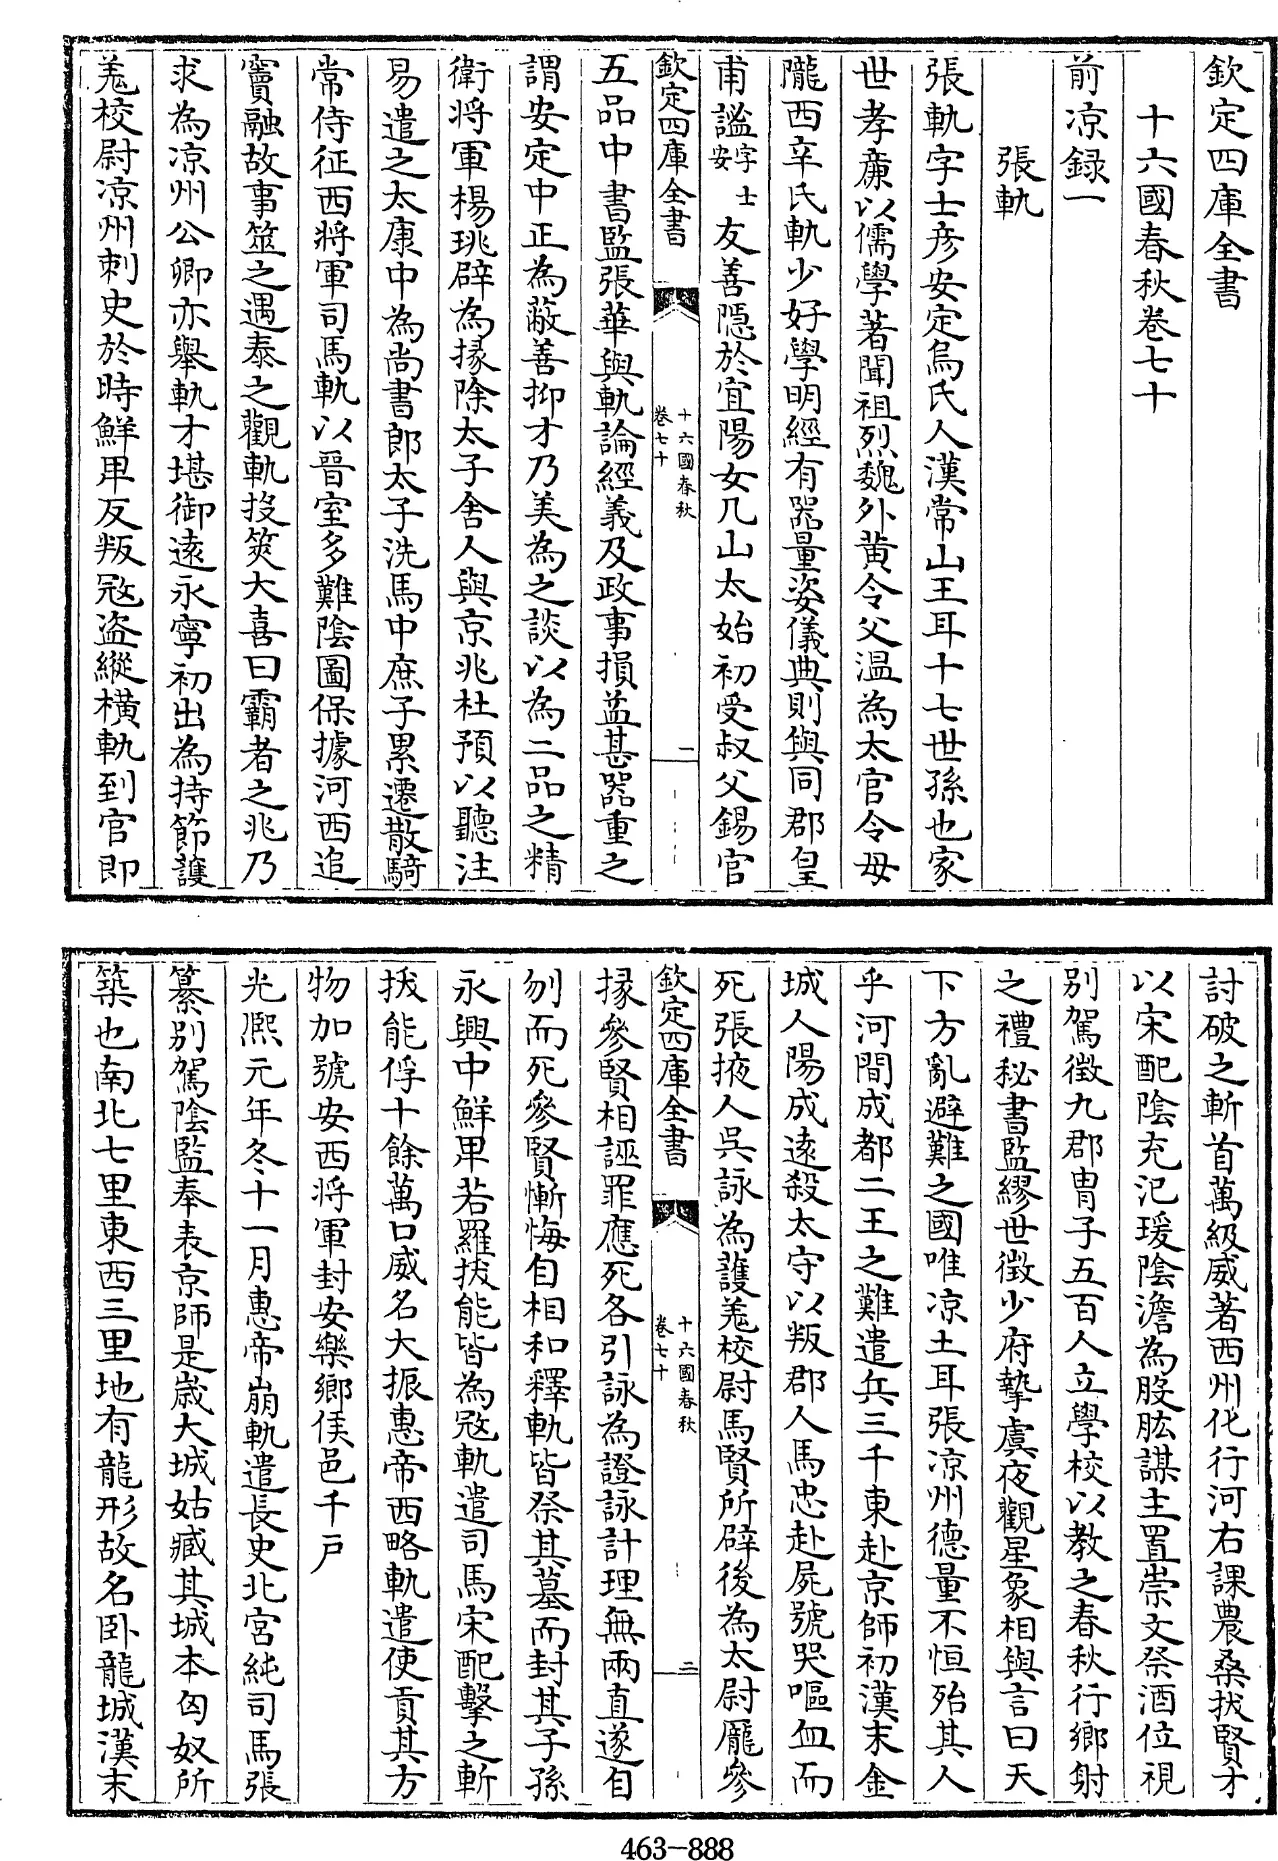 欽定四庫全書
十六國春秋卷七十
前凉録一
張軌
張軌字士彦安定烏氏人漢常山王耳十七世孫也家
世孝亷以儒學著聞祖烈魏外黄令父温為太官令母
隴西辛氏軌少好學明經有器量姿儀典則與同郡皇
甫謐字士安友善隠於宜陽女几山太始初受叔父錫官
欽定四庫全書
十六國春秋
卷七十
二
五品中書監張華與軌論經義及政事損益甚器重之
謂安定中正為蔽善抑才乃美為之談以為二品之精
衛将軍楊珧辟為掾除太子舍人與京兆杜預以聽注
易遣之太康中為尚書郎太子洗馬中庶子累遷散騎
常侍征西將軍司馬軌以晉室多難陰圖保據河西追
竇融故事筮之遇泰之觀軌投筴大喜曰霸者之兆乃
求為凉州公卿亦舉軌才堪御逺永寧初出為持節護
羗校尉凉州刺史於時鮮卑反叛冦盗縱横軌到官即
討破之斬首萬級威著西州化行河右課農桑拔賢才
以宋配陰充氾瑗陰澹為股肱謀主置崇文祭酒位視
别駕徴九郡胄子五百人立學校以教之春秋行鄉射
之禮秘書監繆世徴少府摯虞夜觀星象相與言曰天
下方亂避難之國唯凉土耳張凉州德量不恒殆其人
乎河間成都二王之難遣兵三千東赴京師初漢末金
城人陽成逺殺太守以叛郡人馬忠赴屍號哭嘔血而
死張掖人吳詠為䕶羗校尉馬賢所辟後為太尉龐參
欽定四庫全書
十六國春秋
卷七十
三
掾參賢相誣罪應死各引詠為證詠計理無兩直遂自
刎而死參賢慚悔自相和釋軌皆祭其墓而封其子孫
永興中鮮卑若羅拔能皆為冦軌遣司馬宋配擊之斬
拔能俘十餘萬口威名大振惠帝西略軌遣使貢其方
物加號安西将軍封安樂鄉侯邑千戶
光熙元年冬十一月惠帝崩軌遣長史北宮純司馬張
纂别駕陰監奉表京師是嵗大城姑臧其城本匈奴所
築也南北七里東西三里地有龍形故名卧龍城漢末
463-888